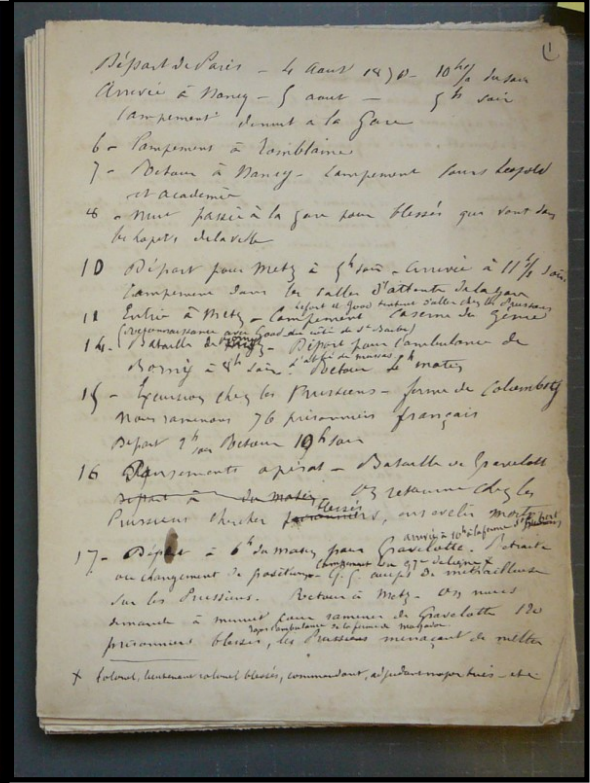 (1
Départ de Paris - 4 Aout 1870 - 10h 1/2 du soir
Arrivée à Nancy - 5 aout - 5h soir
Campement devant la gare
6 - Campement à Tomblaine
7 - Retour à Nancy - Campement Cours Leopold
et académie
8 - Nuit passée à la gare pour blessés qui vont dans
les hopitx de la ville
10 Départ pour Metz à 5h soir - arrivée à 11h 1/2 soir
Campement dans les salles d'attente de la gare
Lefort et Good d'aller chez les Prussiens
11 Entrée à Metz - Campement Caserne du génie
(reconnaissance avec Good du côté de Ste Barbe)
14 - Bataille de Borny - Départ pour l'ambulance de
Borny à 8h soir. Retour 4h matin
15 - Excursion chez les Prussiens - ferme de Colombey
nous ramenons 76 prisonniers français
Départ 2h soir Retour 10h soir
16 Pansements opérat - Bataille de Gravelott
Départ à du matin on retourne chez les
Prussiens chercher blessés, ensevelir morts
arrivée à 10h à la ferme
17 - Départ à 6h du matin pour Gravelotte. Retraite
campement du 97e de ligne x
ou changement de position - G. G. coups de mitrailleuse
sur les Prussiens. Retour à Metz - On nous
demande à minuit pour ramener de Gravelotte 120
l'ambulance de la ferme de
prisonniers blessés, les Prussiens menaçant de mettre
x Colonel, lieutenant colonel blessés, commandant, adjudant major tués - etc